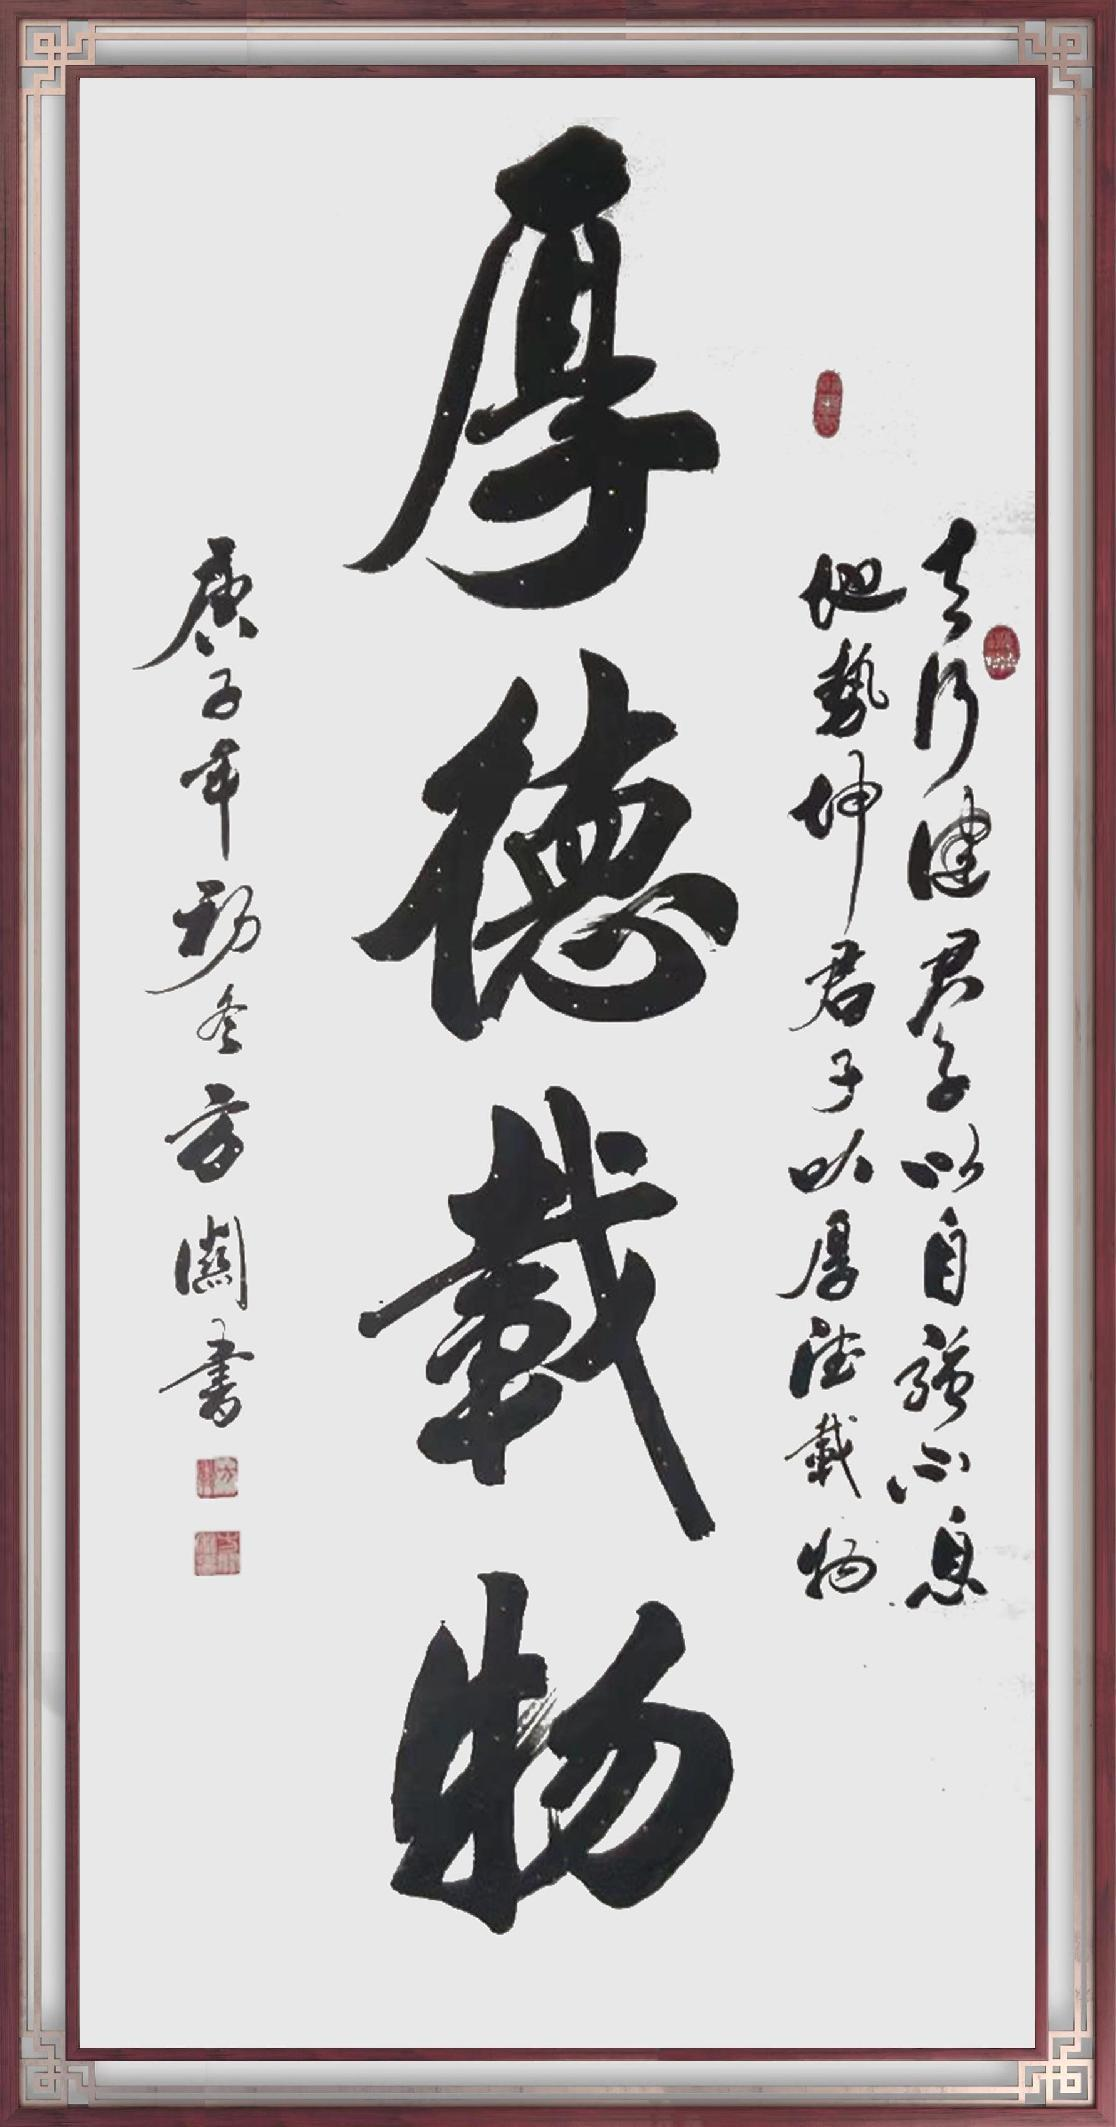 天行健君子以自強不息
地勢坤君子以厚德載物
厚德載物
庚子年初冬方書